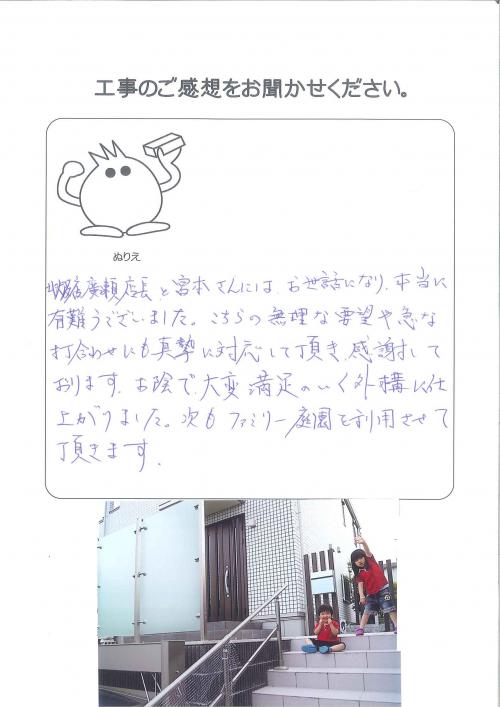 工事のご感想をお聞かせください。
ぬりえ
廣瀬店長と宮本さんには、お世話になり、本当に
有難うございました。こちらの無理な要望や急な
打合わせにも真摯に対応して頂き、感謝して
おります。お陰で、大変満足のいく外構に仕
上がりました。次もファミリー庭園を利用させて
頂きます。